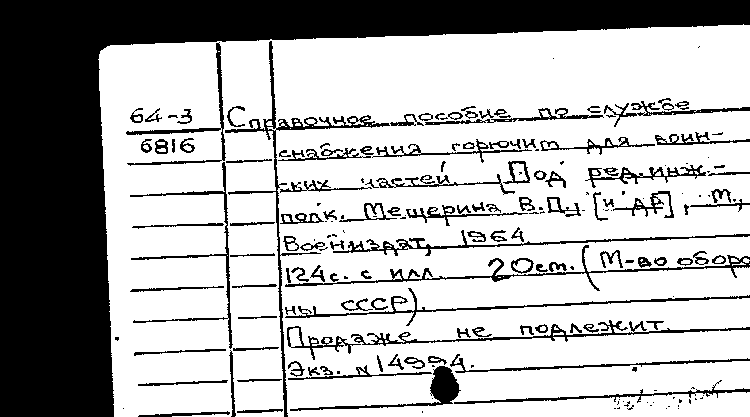 64-3 Справочное пособие по службе
6816 снабжения горючим для воин-
ских частей. [Под ред. инж.-
полк. Мещерина В.П., [и др], М.,
Воениздат, 1964
124с. с илл. 20см. (М-во оборо
ны СССР).
Продаже не подлежит.
Экз. N 14994.